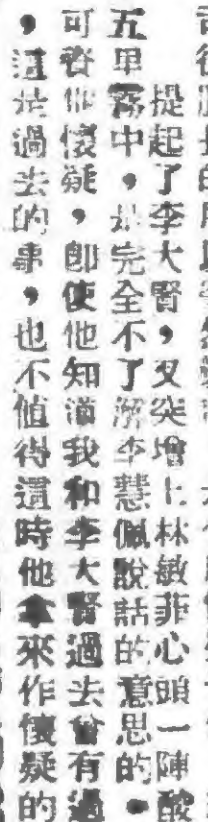 提起了李大賢,又突增上林敏菲心頭一陣酸
五里霧中,是完全不了解李慧佩說話的意思的。
可資他懷疑,即使他知道我和李大賢過去曾有過
,這是過去的事,也不值得這時他拿來作懷疑的